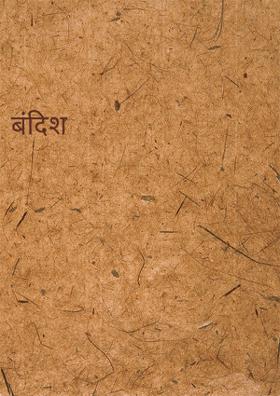 बंदिश